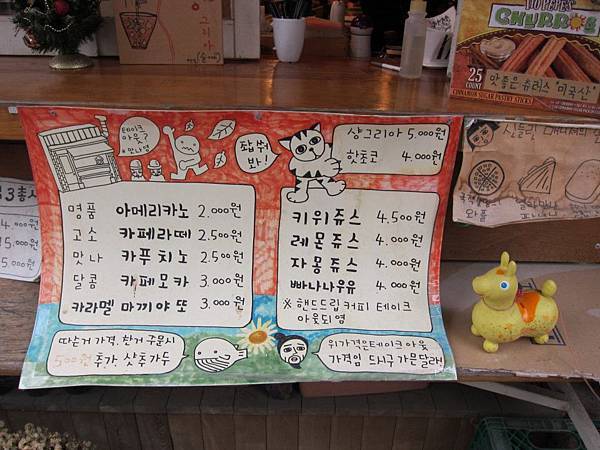 그리아
TIO PEPE'S
CHURROS
25
COUNT
맛좋은 슈러스 "미국산"
CINNAMON SUGAR PASTRY STICKS
테이크
아웃?
좀봐
봐!
샹그리아 5,000원
핫쵸코 4,000원
명품 아메리카노 2,000원
고소 카페라떼 2,500원
맛나 카푸치노 2,500원
달콤 카페모카 3,000원
카라멜 마끼야또 3,000원
키위쥬스 4,500원
레몬쥬스 4,000원
자몽쥬스 4,000원
빠나나우유 4,000원
※ 핸드드립 커피 테이크
아웃되염
따슨거 가격, 찬거 주문시
500원 추가.
위가격은테이크아웃
가격임 드시구 가믄달래
와플